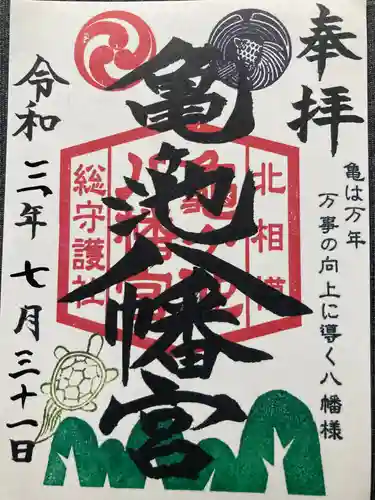 奉拝
亀は万年
万事の向上に導く八幡様
北相模
亀ヶ池
八幡宮
総守護社
亀ヶ池八幡宮
令和三年七月三十一日